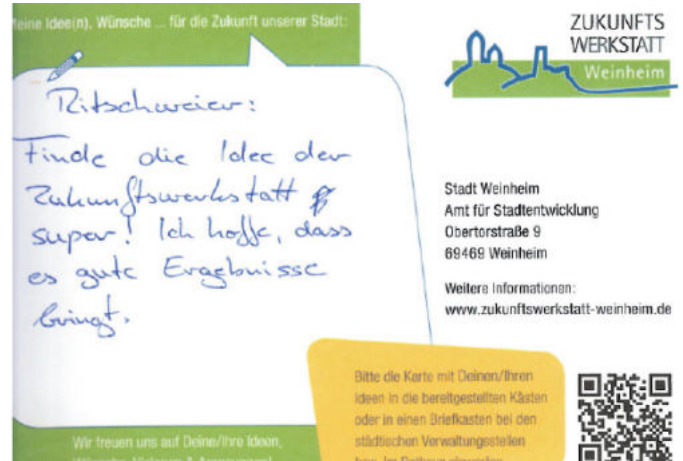 Meine Idee(n), Wünsche ... für die Zukunft unserer Stadt:
Ritschweier:
Finde die Idee der
Zukunftswerkstatt
super! Ich hoffe, dass
es gute Ergebnisse
bringt.
Wir freuen uns auf Deine/Ihre Ideen,
ZUKUNFTS
WERKSTATT
Weinheim
Stadt Weinheim
Amt für Stadtentwicklung
Obertorstraße 9
69469 Weinheim
Weitere Informationen:
www.zukunftswerkstatt-weinheim.de
Bitte die Karte mit Deinen/Ihren
Ideen in die bereitgestellten Kästen
oder in einen Briefkasten bei den
städtischen Verwaltungsstellen